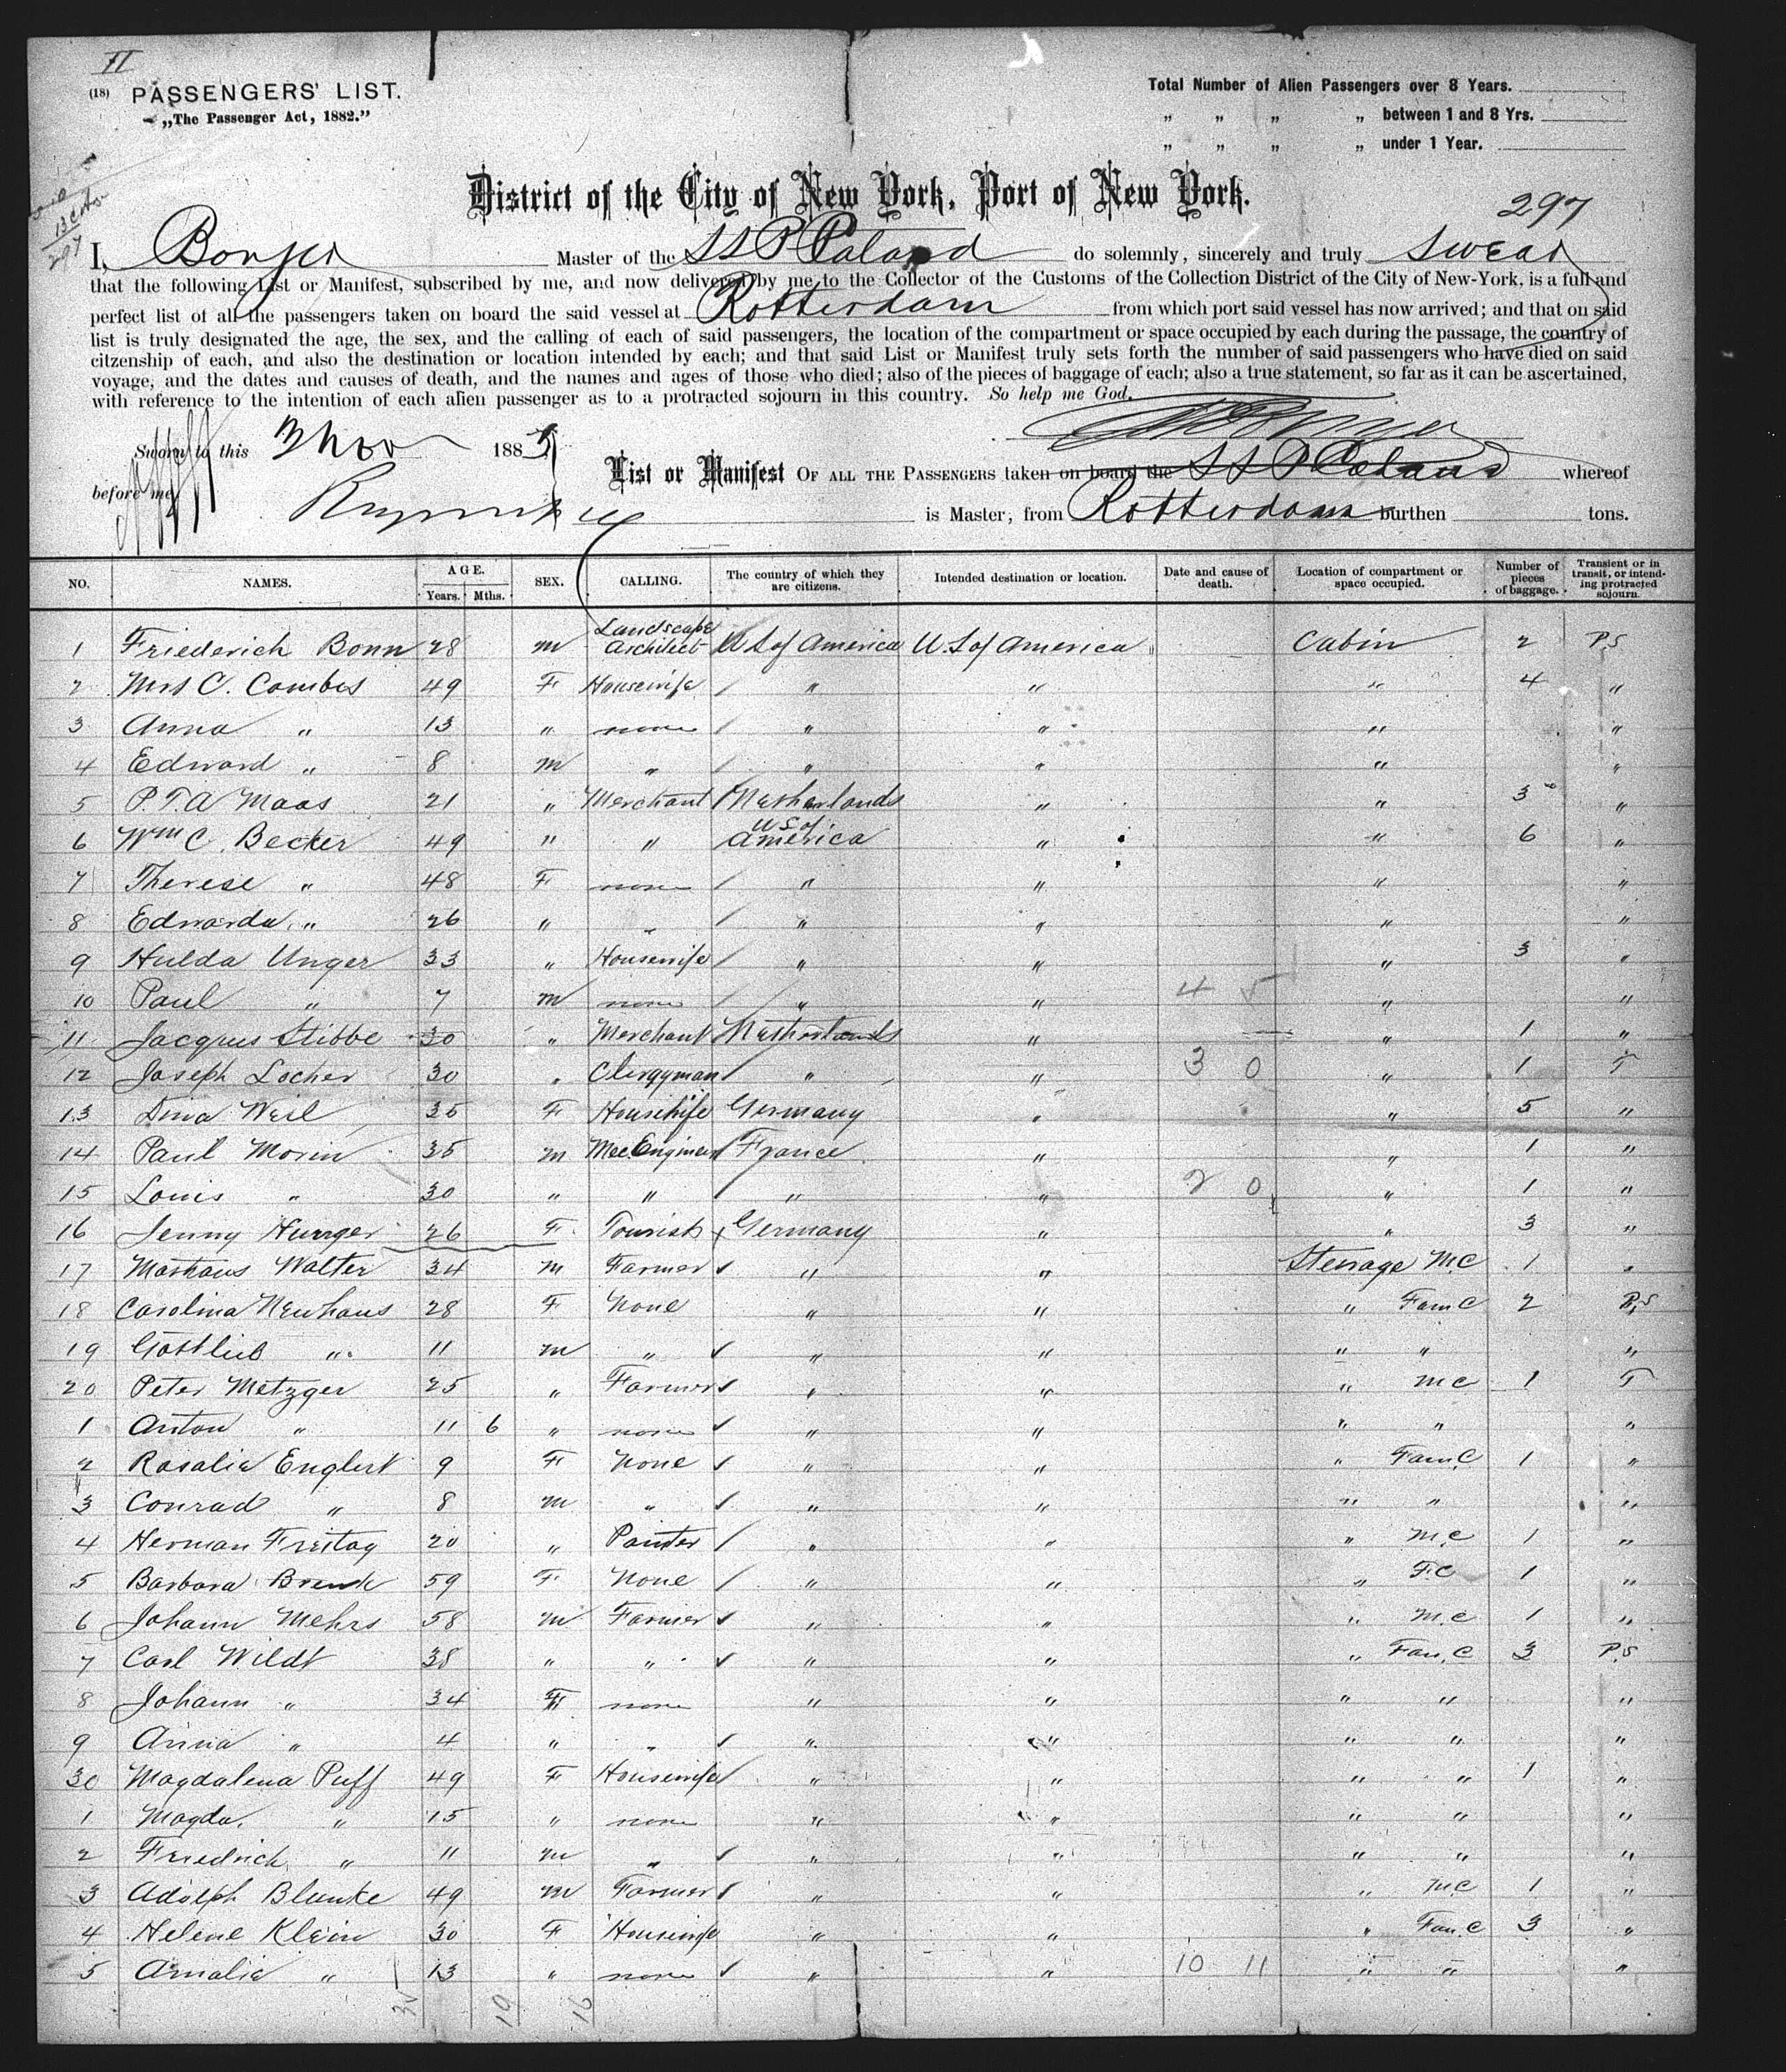 II
(18) PASSENGERS' LIST.
„The Passenger Act, 1882."
Total Number of Alien Passengers over 8 Years.
„ „ „ „ between 1 and 8 Yrs.
„ „ „ „ under 1 Year.
District of the City of New York, Port of New York.
297
13
297
I, Bonjer Master of the SS P Caland do solemnly, sincerely and truly swear
that the following List or Manifest, subscribed by me, and now delivered by me to the Collector of the Customs of the Collection District of the City of New-York, is a full and
perfect list of all the passengers taken on board the said vessel at Rotterdam from which port said vessel has now arrived; and that on said
list is truly designated the age, the sex, and the calling of each of said passengers, the location of the compartment or space occupied by each during the passage, the country of
citzenship of each, and also the destination or location intended by each; and that said List or Manifest truly sets forth the number of said passengers who have died on said
voyage, and the dates and causes of death, and the names and ages of those who died; also of the pieces of baggage of each; also a true statement, so far as it can be ascertained,
with reference to the intention of each alien passenger as to a protracted sojourn in this country. So help me God.
Sworn to this 3 Nov 188
before me
List or Manifest OF ALL THE PASSENGERS taken on board the SS P Caland whereof
is Master, from Rotterdam burthen tons.
NO. NAMES. AGE. Years. Mths. SEX. CALLING. The country of which they are citizens. Intended destination or location. Date and cause of death. Location of compartment or space occupied. Number of pieces of baggage. Transient or in transit, or intending protracted sojourn.
1 Friederich Bonn 28 m Landscape Architect U S of America U.S of America Cabin 2 P.S
2 Mrs C. Combes 49 F Housewife " " " 4 "
3 Anna " 13 " none " " " "
4 Edward " 8 m " " " " "
5 P.T.A Maas 21 " Merchant Netherlands " " 3 "
6 Wm C. Becker 49 " " U S of America " " 6 "
7 Therese " 48 F none " " " "
8 Edwarda " 26 " " " " " "
9 Hulda Unger 33 " Housewife " " " 3 "
10 Paul " 7 m none " " 4 5 " "
11 Jacques Stibbe 30 " Merchant Netherlands " " 1 "
12 Joseph Locher 30 " Clergyman " " 3 0 " 1 T
13 Dina Weil 35 F Housewife Germany " " 5 "
14 Paul Morin 35 m Mec.Engineer France " " 1 "
15 Louis " 30 " " " " 2 0 " 1 "
16 Jenny 26 F Tourist Germany " " 3 "
17 Mathaus Walter 34 m Farmer " " Steerage M.C 1 "
18 Carolina Neuhaus 28 F None " " " Fam C 2 P.S
19 Gottlieb " 11 m " " " " " "
20 Peter Metzger 25 " Farmer " " " M C 1 T
1 Anton " 11 6 " none " " " " "
2 Rosalie Englert 9 F None " " " Fam.C 1 "
3 Conrad " 8 m " " " " " "
4 Herman Freitag 20 " Painter " " " M.C 1 "
5 Barbara 59 F None " " " F.C 1 "
6 Johann Mehrs 58 m Farmer " " " M.C 1 "
7 Carl Wildt 38 " " " " " Fam.C 3 P.S
8 Johann " 34 F none " " " " "
9 Anna " 4 " " " " " " "
30 Magdalena Puff 49 F Housewife " " " " 1 "
1 Magda. " 15 " none " " " " "
2 Friedrich " 11 m " " " " " "
3 Adolph Blunke 49 m Farmer " " " M.C 1 "
4 Helene Klein 30 F Housewife " " " Fam.C 3 "
5 Amalie " 13 " none " " 10 11 " " "
19 16